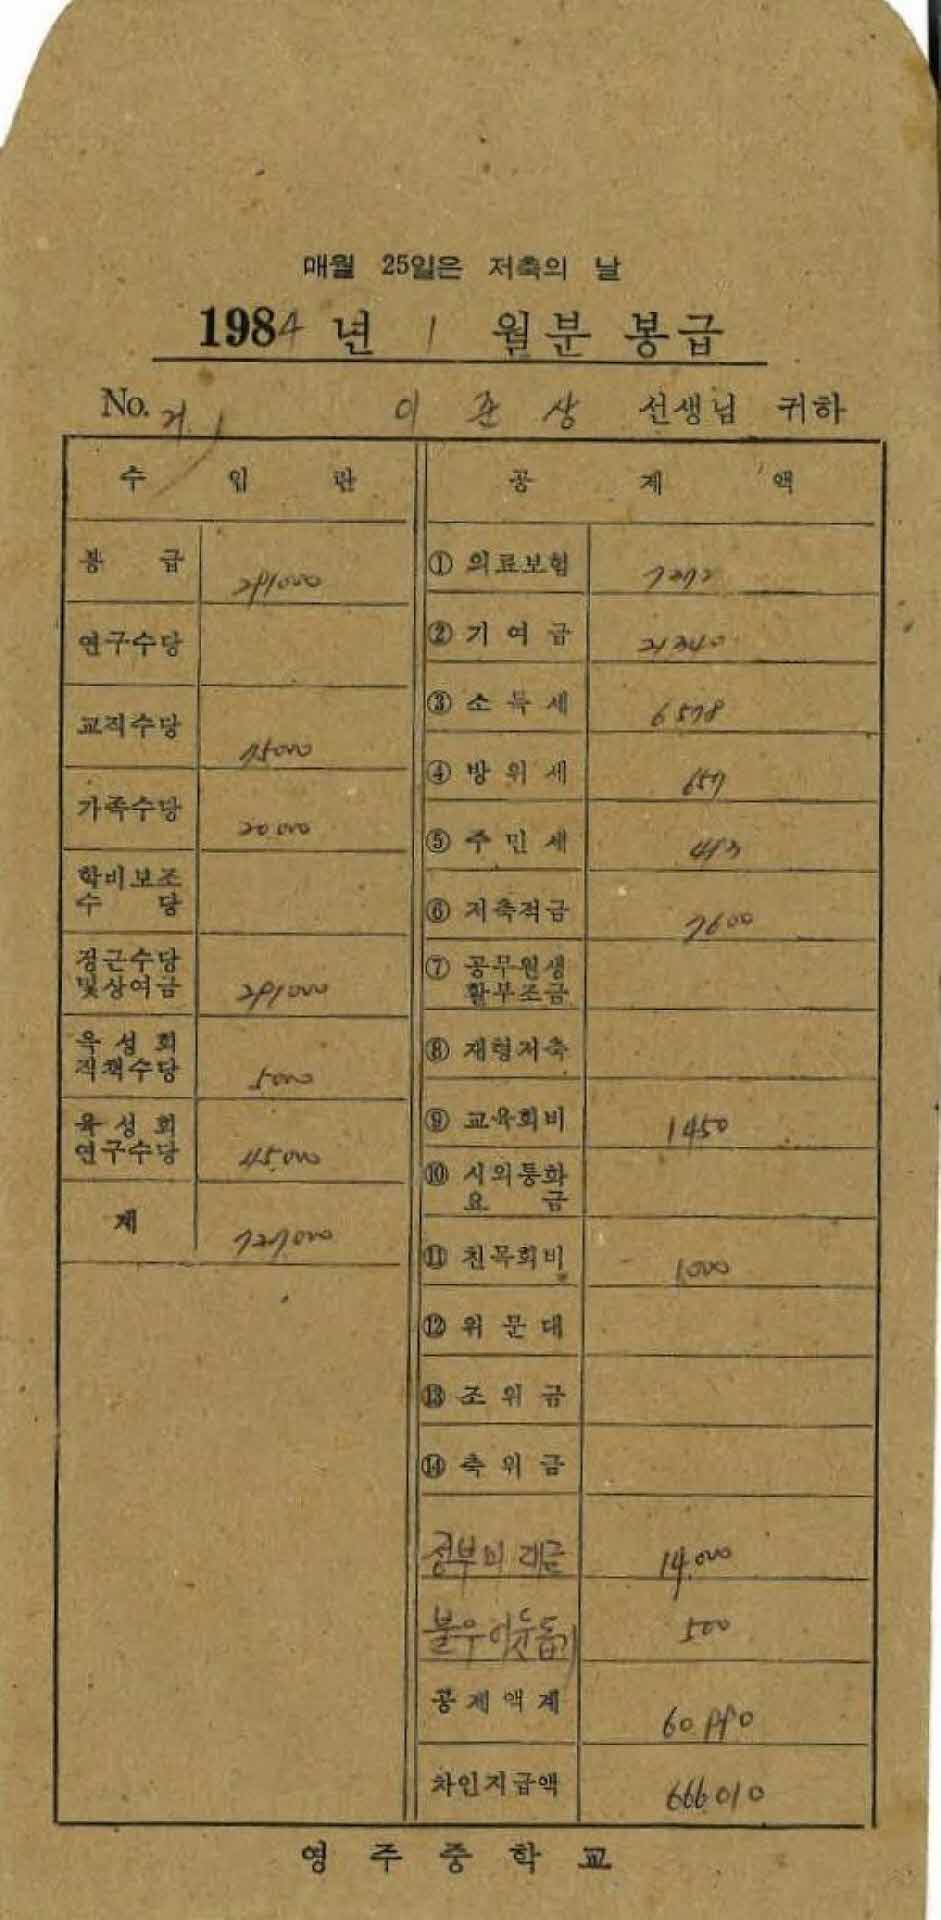 매월 25일은 저축의 날
1984년 1월분 봉급
No. 이준상 선생님 귀하
수 입 란
봉 급 291000
연구수당
교직수당 75000
가족수당 20000
학비보조
수 당
정근수당
및상여금 291000
육성회
직책수당 5000
육성회
연구수당 45.000
계 727000
공 제 액
① 의료보험 7272
② 기여금 21340
③ 소득세 6578
④ 방위세 657
⑤ 주민세 493
⑥ 저축적금 7600
⑦ 공무원생
활부조금
⑧ 재형저축
⑨ 교육회비 1450
⑩ 시외통화
요 금
⑪ 친목회비 1000
⑫ 위문대
⑬ 조위금
⑭ 축위금
정부미 대금 14.000
불우이웃돕기 500
공제액계 60.990
차인지급액 666.010
영주중학교